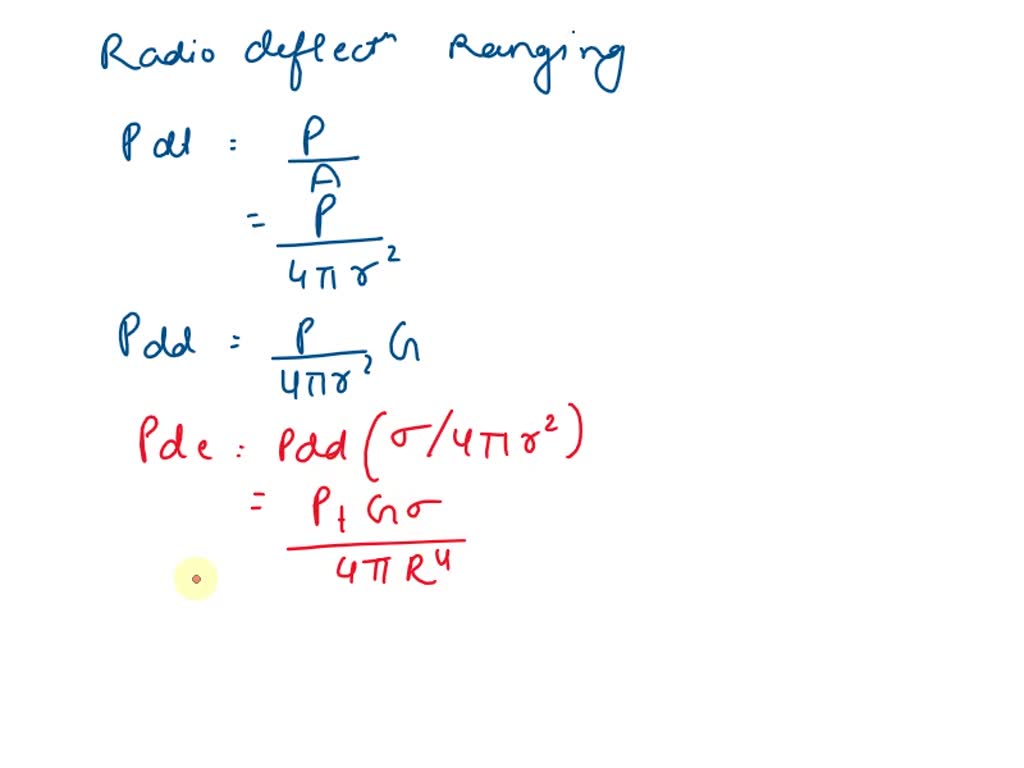 Radio deflectn Ranging
Pdt = P/A
= P/4πr²
Pdd = P/4πr² G
Pde = Pdd (σ/4πr²)
= Pt Gσ/4πR⁴